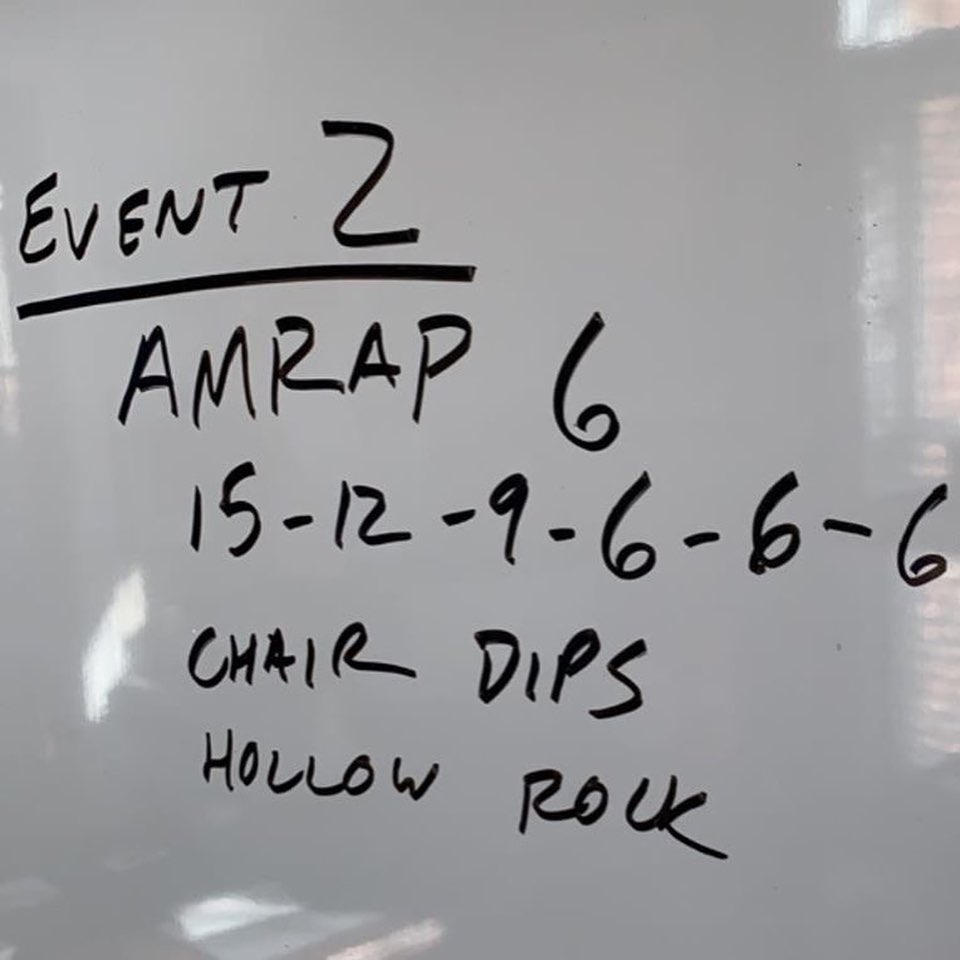 EVENT 2
AMRAP 6
15-12-9-6-6-6
CHAIR DIPS
HOLLOW ROCK